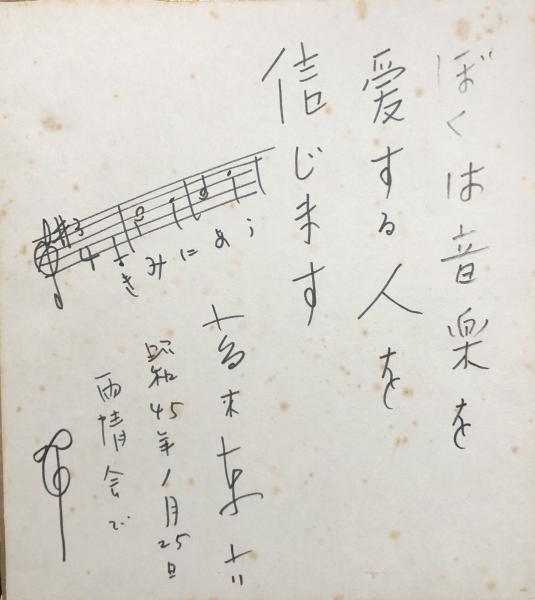 ぼくは音楽を
愛する人を
信じます
3
4
きみにあう
高木東六
昭和45年1月25日
雨情会で